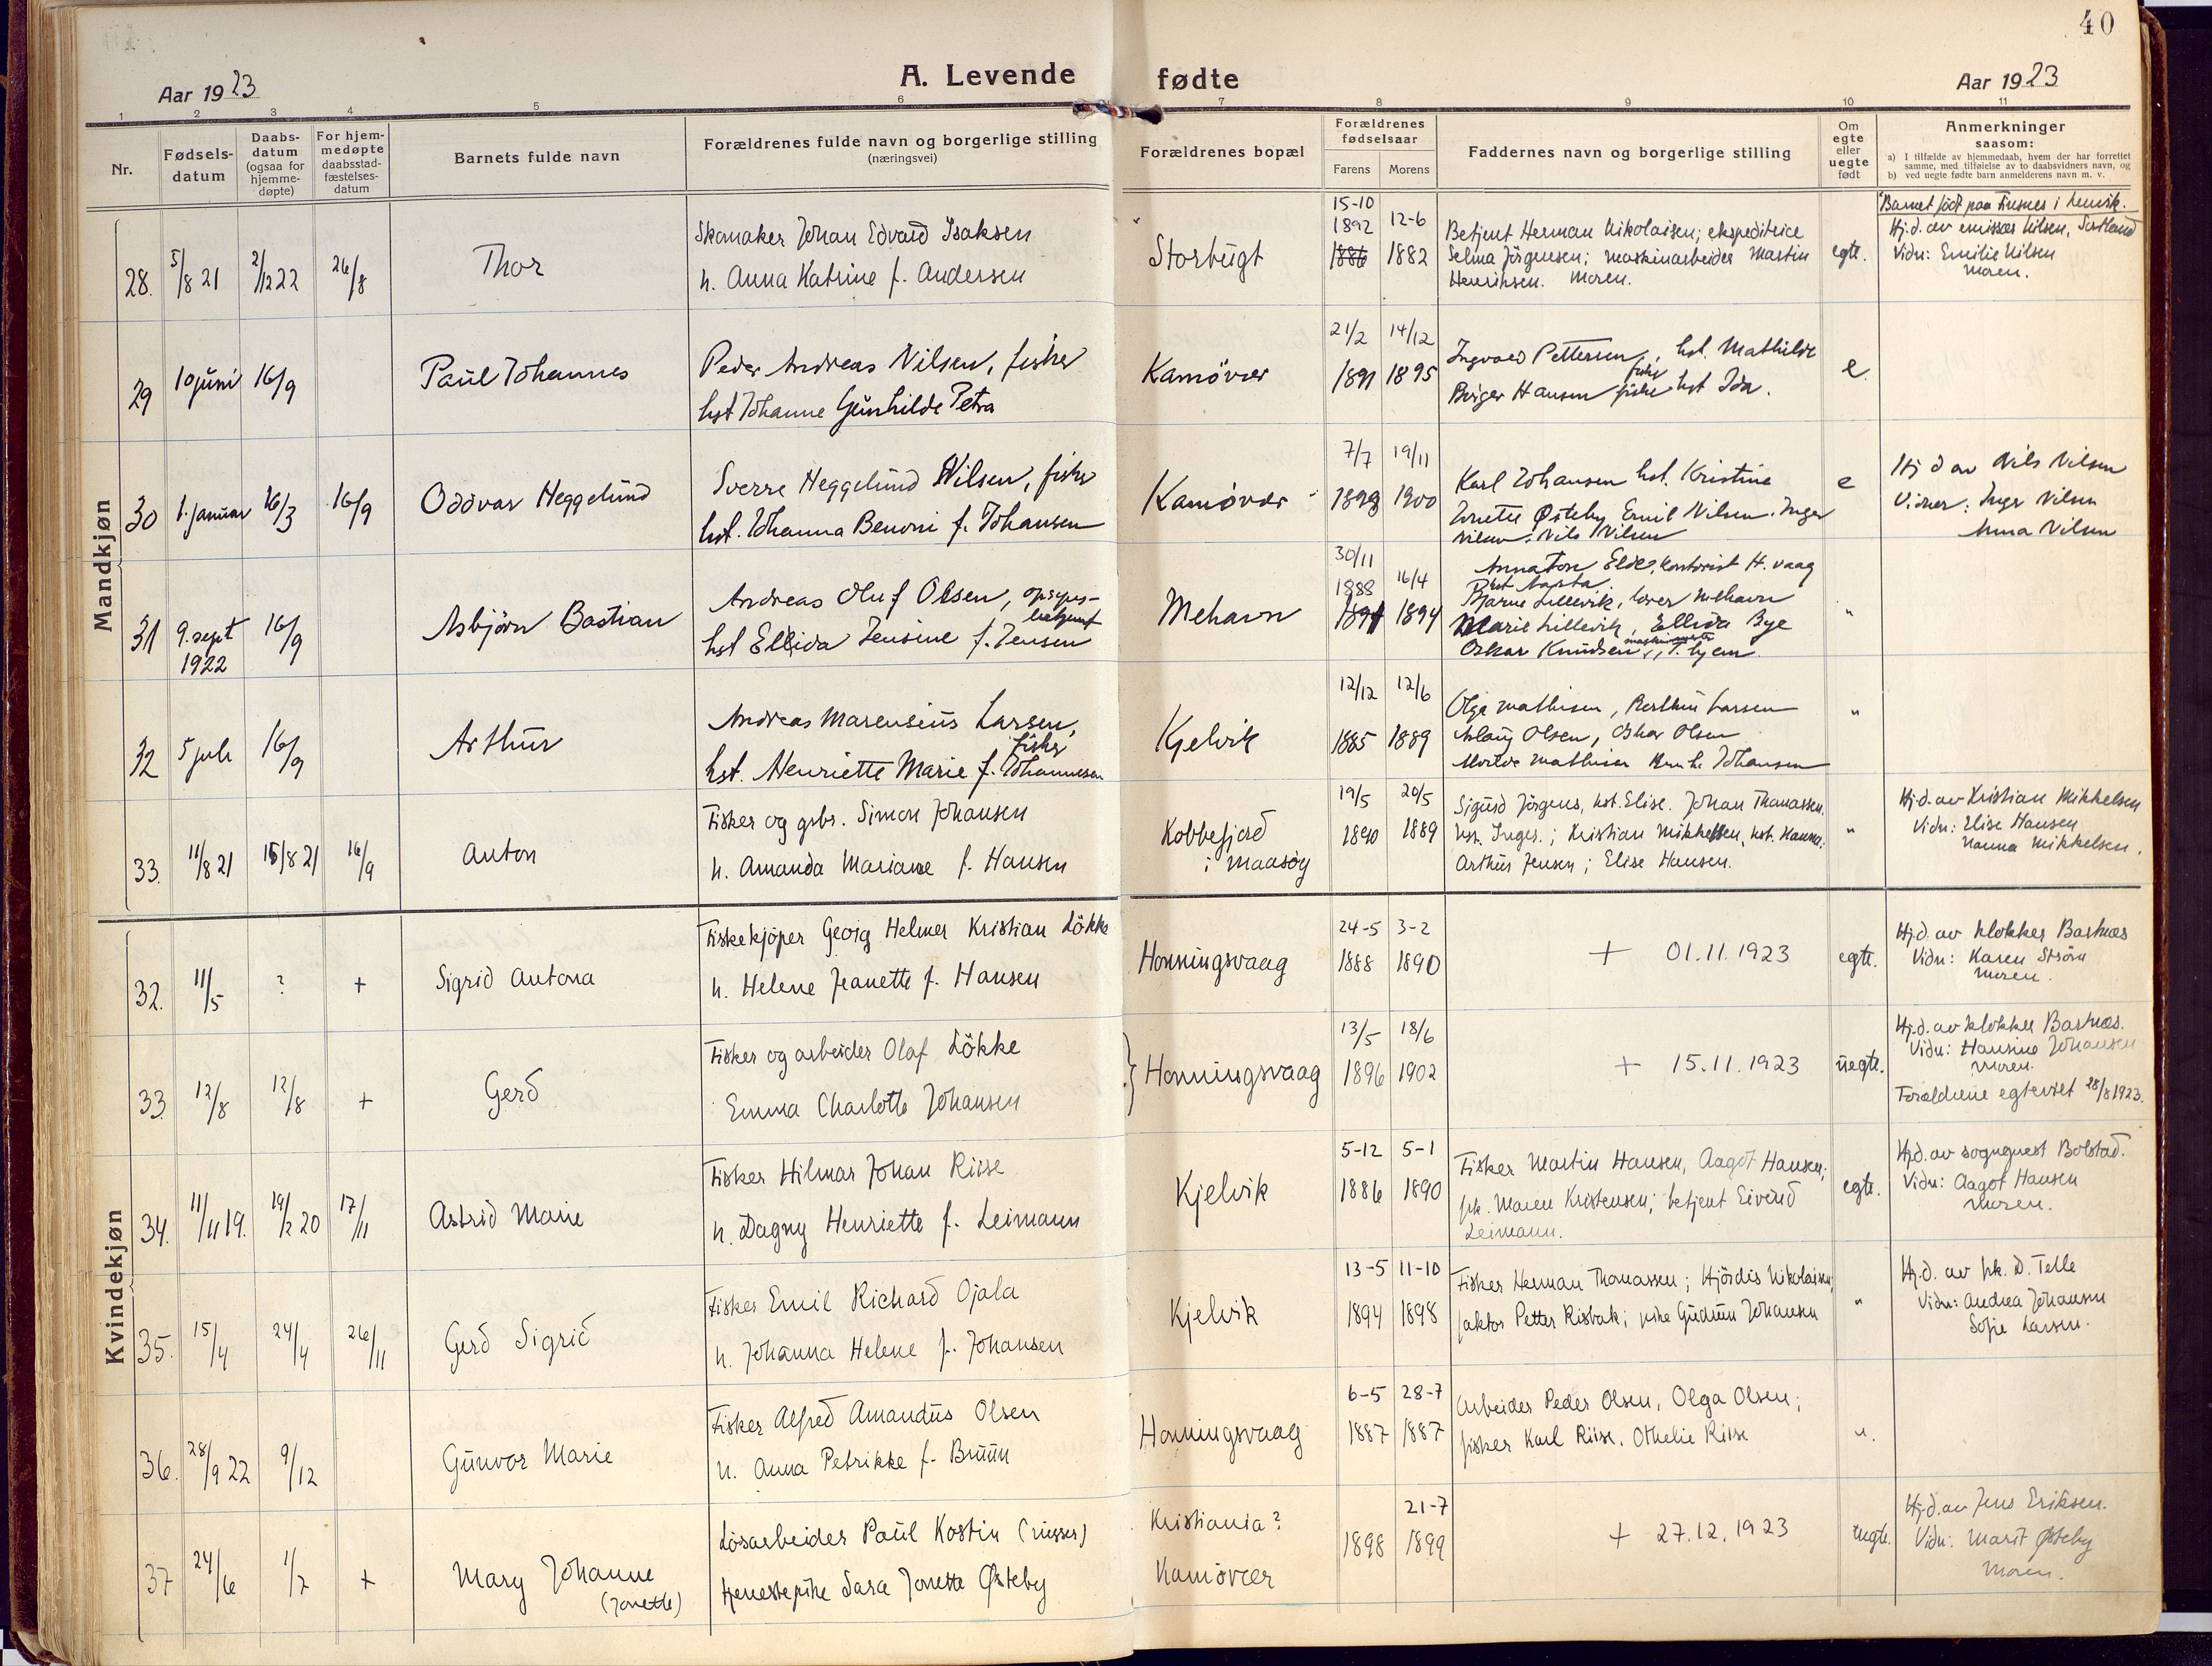 40
A. Levende fødte
Aar 1923
Aar 1923
1 2 3 4 5 6 7 8 9 10 11
Nr.
Fødsels-
datum
Daabs-
datum
(ogsaa for
hjemme-
døpte)
For hjem-
medøpte
daabsstad-
fæstelses-
datum
Barnets fulde navn
Forældrenes fulde navn og borgerlige stilling
(næringsvei)
Forældrenes bopæl
Forældrenes
fødselsaar
Farens Morens
Faddernes navn og borgerlige stilling
Om
egte
eller
uegte
født
Anmerkninger
saasom:
a) I tilfælde av hjemmedaab, hvem der har forrettet
samme, med tilføielse av to daabsvidners navn, og
b) ved uegte fødte barn anmelderens navn m. v.
Mandkjøn
28. 5/8 21 2/12 22 26/8 Thor
Skomaker Johan Edvard Isaksen
h. Anna Katrine f. Andersen
Storbugt
15-10 1892 1886
12-6 1882
Betjent Herman Nikolaisen; ekspeditrice
Selma Jörgensen; maskinarbeider Martin
Henriksen. Moren.
egte.
Barnet født paa Finsnes i Lenvik.
Hj.d. av emissær Nilsen, Sortland
Vidn: Emilie Nilsen
Moren.
29 10 juni 16/9 Paul Johannes
Peder Andreas Nilsen, fisker
hst Johanne Gunhilde Petra
Kamøvær
21/2 1891
14/12 1895
Ingvald Pettersen, hst. Mathilde
Birger Hansen fisker hst Ida.
e.
30 1. januar 16/3 16/9 Oddvar Heggelund
Sverre Heggelund Nilsen, fisker
hst. Johanna Benoni f. Johansen
Kamøvær
7/7 1898
19/11 1900
Karl Johansen hst. Kristine
Østeby Emil Nilsen. Inger
Nilsen. Nils Nilsen
e
Hj d av Nils Nilsen
Vidner: Inger Nilsen
Anna Nilsen
31 9. sept 1922 16/9 Asbjörn Bastian
Andreas Oluf Olsen, opsyns-
betjent
hst Ellida Jensine f. Jensen
Mehavn
30/11 1888
16/4 1894
Anna Eldes, kontorist H. vaag
Bjarne Lillevik, lærer Mehavn
Marie Lillevik, Ellida Bye
Oskar Knudsen
"
32 5 juli 16/9 Arthur
Andreas Marensius Larsen,
fisker
hst. Henriette Marie f. Johannesen
Kjelvik
12/12 1885
12/6 1889
Olga Mathisen, Berthin Larsen
Aslaug Olsen, Oskar Olsen
Mathisen Johansen
"
33. 11/8 21 15/8 21 16/9 Anton
Fisker og grbr. Simon Johansen
h. Amanda Mariane f. Hansen
Kobbefjord
i Maasöy
19/5 1890
20/5 1889
Sigurd Jörgens, hst. Elise. Johan Thomassen.
hst. Inger.; Kristian Mikkelsen, hst. Hanna;
Arthur Jensen; Elise Hansen.
"
Hj.d. av Kristian Mikkelsen
Vidn: Elise Hansen
Hanna Mikkelsen.
Kvindekjøn
32. 11/5 ? + Sigrid Antona
Fiskekjöper Georg Helmer Kristian Lökke
h. Helene Jeanette f. Hansen
Honningsvaag
24-5 1888
3-2 1890
+ 01.11.1923
egte.
Hj.d. av klokker Basnæs
Vidn: Karen Ström
Moren.
33. 12/8 12/8 + Gerd
Fisker og arbeider Olaf Lökke
Emma Charlotte Johansen
Honningsvaag
13/5 1896
18/6 1902
+ 15.11.1923
uegte.
Hj.d. av klokker Basnæs.
Vidn: Hansine Johansen
Moren.
Forældrene egteviet 28/8 1923.
34. 11/11 19. 19/2 20 17/11 Astrid Marie
Fisker Hilmar Johan Riise
h. Dagny Henriette f. Leimann
Kjelvik
5-12 1886
5-1 1890
Fisker Martin Hansen, Aagot Hansen;
frk. Maren Kristensen; betjent Eivind
Leimann.
egte.
Hj.d. av sogneprest Bolstad.
Vidn: Aagot Hansen
Moren.
35. 15/4 24/4 26/11 Gerd Sigrid
Fisker Emil Richard Ojala
h. Johanna Helene f. Johansen
Kjelvik
13-5 1894
11-10 1898
Fisker Herman Thomassen; Hjördis Nikolaisen;
faktor Petter Risbak; pike Gudrun Johansen
"
Hj.d. av frk. D. Telle
Vidn: Andrea Johansen
Sofie Larsen.
36. 28/9 22 9/12 Gunvor Marie
Fisker Alfred Amandus Olsen
h. Anna Petrikke f. Bruun
Honningsvaag
6-5 1887
28-7 1887
Arbeider Peder Olsen, Olga Olsen;
fisker Karl Riise. Othelie Riise
".
37 24/6 1/7 + Mary Johanne
(Jonette)
Lösarbeider Paul Kostin (russer)
tjenestepike Sara Jonette Østeby
Kristiania?
Kamøvær
1898
21-7 1899
+ 27.12.1923
uegte.
Hj.d. av Jens Eriksen.
Vidn: Marit Østeby
Moren.